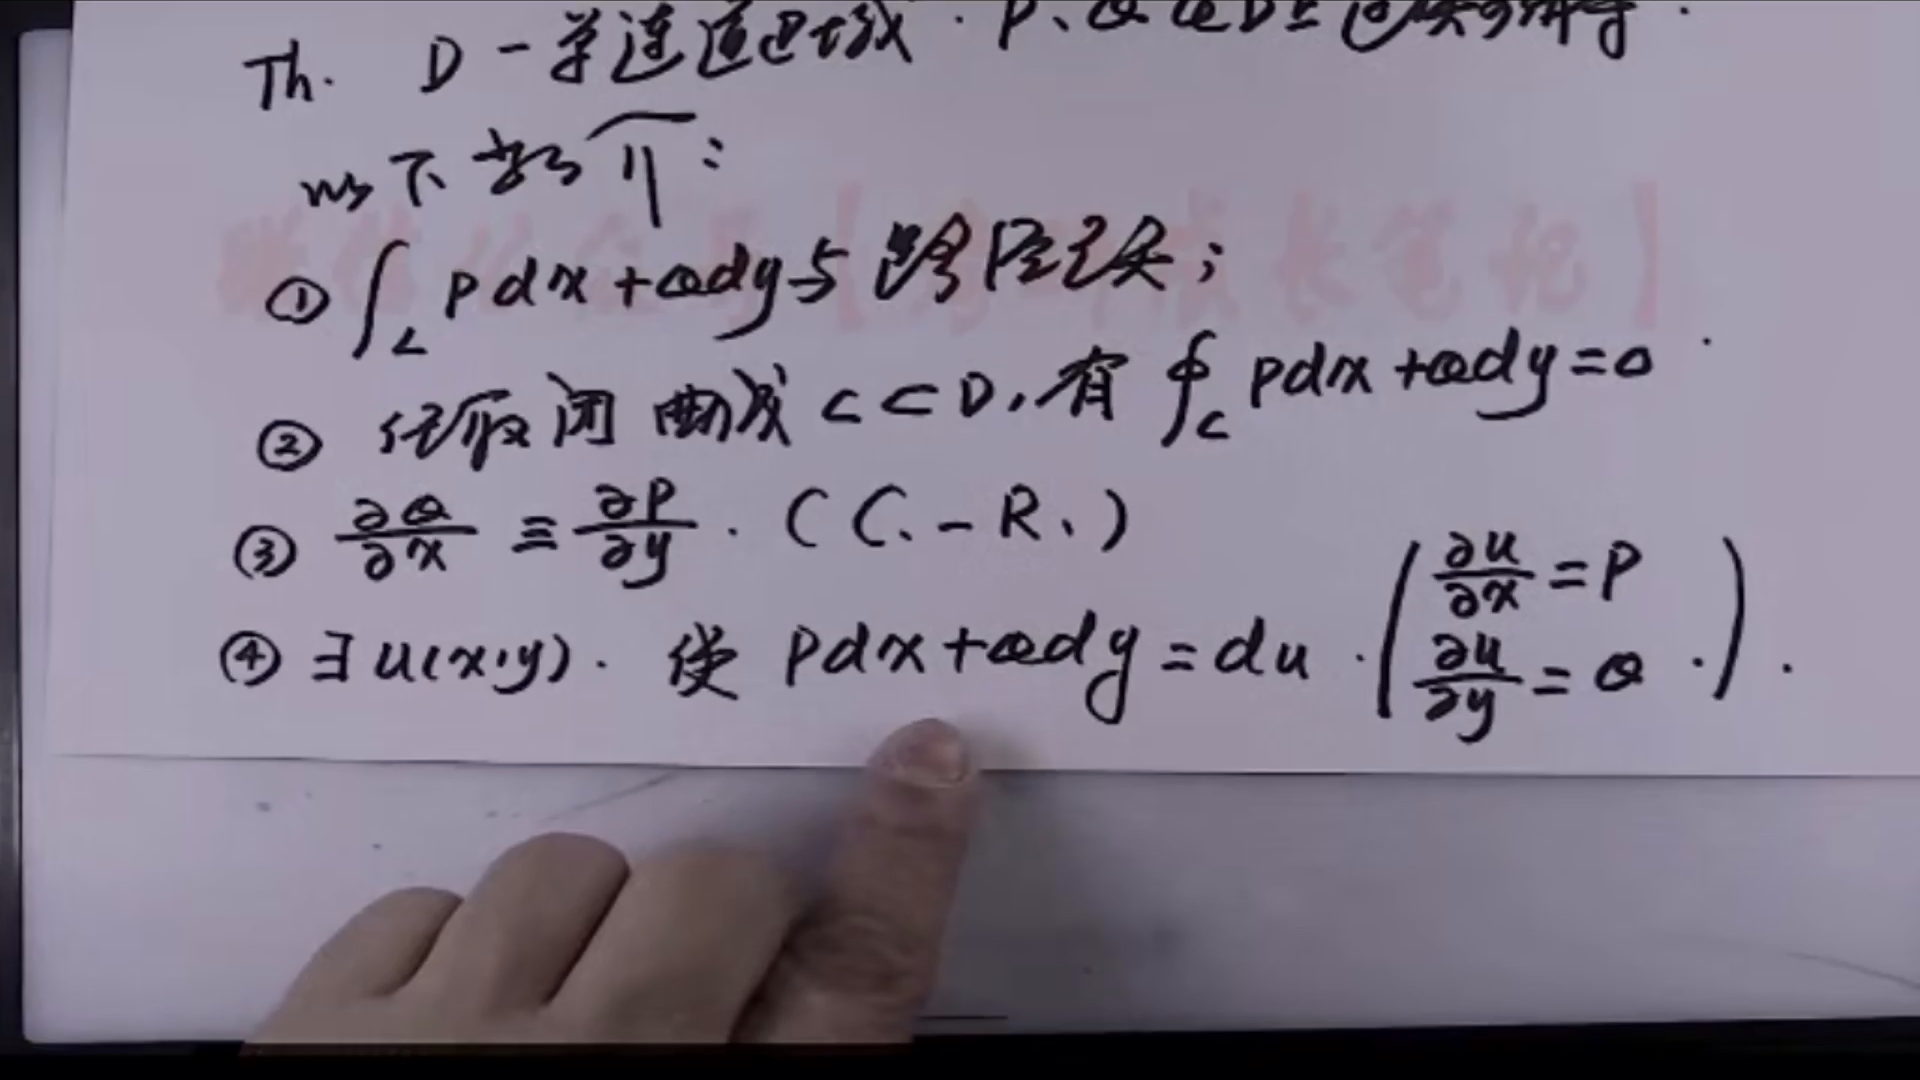 Th. D-单连通区域. P、Q在D上连续可偏导.
以下等价:
① ∫_L Pdx+Qdy与路径无关;
② 任取闭曲线 C⊂D, 有 ∮_C Pdx+Qdy=0
③ ∂Q/∂x ≡ ∂P/∂y. (C.-R.)
④ ∃u(x,y). 使 Pdx+Qdy=du. (∂u/∂x=P ∂u/∂y=Q.).